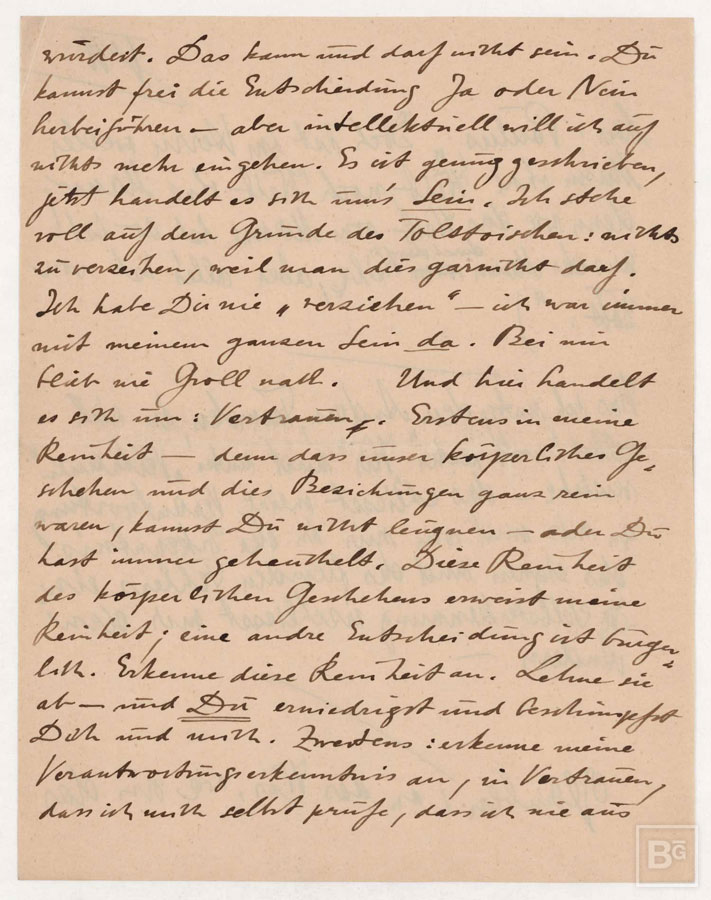 würdest. Das kann und darf nicht sein. Du
kannst frei die Entscheidung Ja oder Nein
herbeiführen — aber intellektuell will ich auf
nichts mehr eingehen. Es ist genug geschrieben,
jetzt handelt es sich um's Sein. Ich stehe
voll auf dem Grunde des Tolstoischen: nichts
zu verzeihen, weil man dies garnicht darf.
Ich habe Dir nie „verziehen“ — ich war immer
mit meinem ganzen Sein da. Bei mir
blieb nie Groll nach. Und hier handelt
es sich um: Vertrauen. Erstens in meine
Reinheit — denn dass unser körperliches Ge-
schehen und dies Beziehungen ganz rein
waren, kannst Du nicht leugnen — oder Du
hast immer geheuchelt. Diese Reinheit
des körperlichen Geschehens erweist meine
Reinheit; eine andre Entscheidung ist bürger-
lich. Erkenne diese Reinheit an. Lehne sie
ab — und Du erniedrigst und beschimpfst
Dich und mich. Zweitens: erkenne meine
Verantwortungserkenntnis an, in Vertrauen,
dass ich mich selbst prüfe, dass ich nie aus
BG